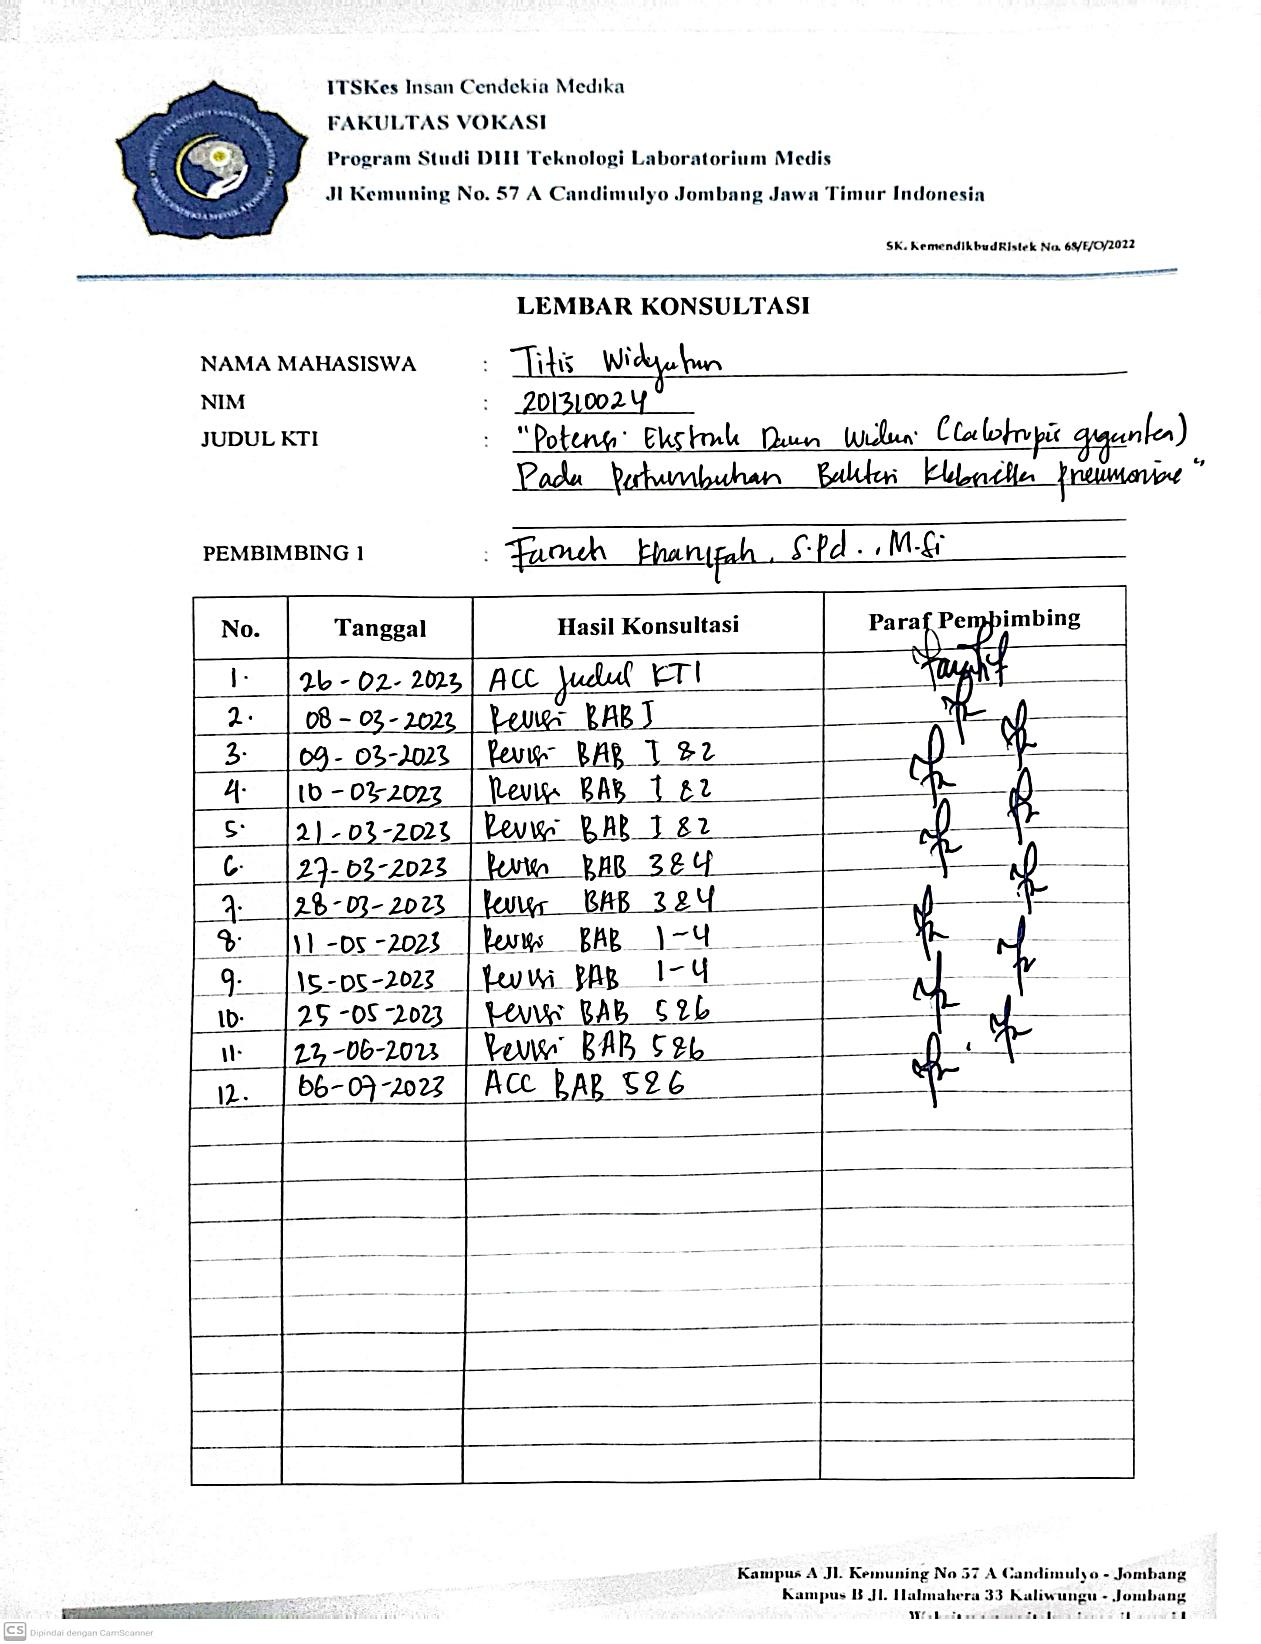 ITSKes Insan Cendekia Medika
FAKULTAS VOKASI
Program Studi DIII Teknologi Laboratorium Medis
Jl Kemuning No. 57 A Candimulyo Jombang Jawa Timur Indonesia
SK. KemendikbudRistek No. 68/E/O/2022
LEMBAR KONSULTASI
NAMA MAHASISWA : Titis Widyatun
NIM : 201310024
JUDUL KTI : "Potensi Ekstrak Daun Widuri (Calotropis gigantea)
Pada Pertumbuhan Bakteri Klebsiella pneumoniae"
PEMBIMBING 1 : Farach Khanifah, S.Pd., M.Si
No. Tanggal Hasil Konsultasi Paraf Pembimbing
1. 26-02-2023 ACC Judul KTI
2. 08-03-2023 Revisi BAB I
3. 09-03-2023 Revisi BAB I & 2
4. 10-03-2023 Revisi BAB I & 2
5. 21-03-2023 Revisi BAB I & 2
6. 27-03-2023 Revisi BAB 3 & 4
7. 28-03-2023 Revisi BAB 3 & 4
8. 11-05-2023 Revisi BAB 1-4
9. 15-05-2023 Revisi BAB 1-4
10. 25-05-2023 Revisi BAB 5 & 6
11. 23-06-2023 Revisi BAB 5 & 6
12. 06-07-2023 ACC BAB 5 & 6
Kampus A Jl. Kemuning No 57 A Candimulyo - Jombang
Kampus B Jl. Halmahera 33 Kaliwungu - Jombang
CS Dipindai dengan CamScanner